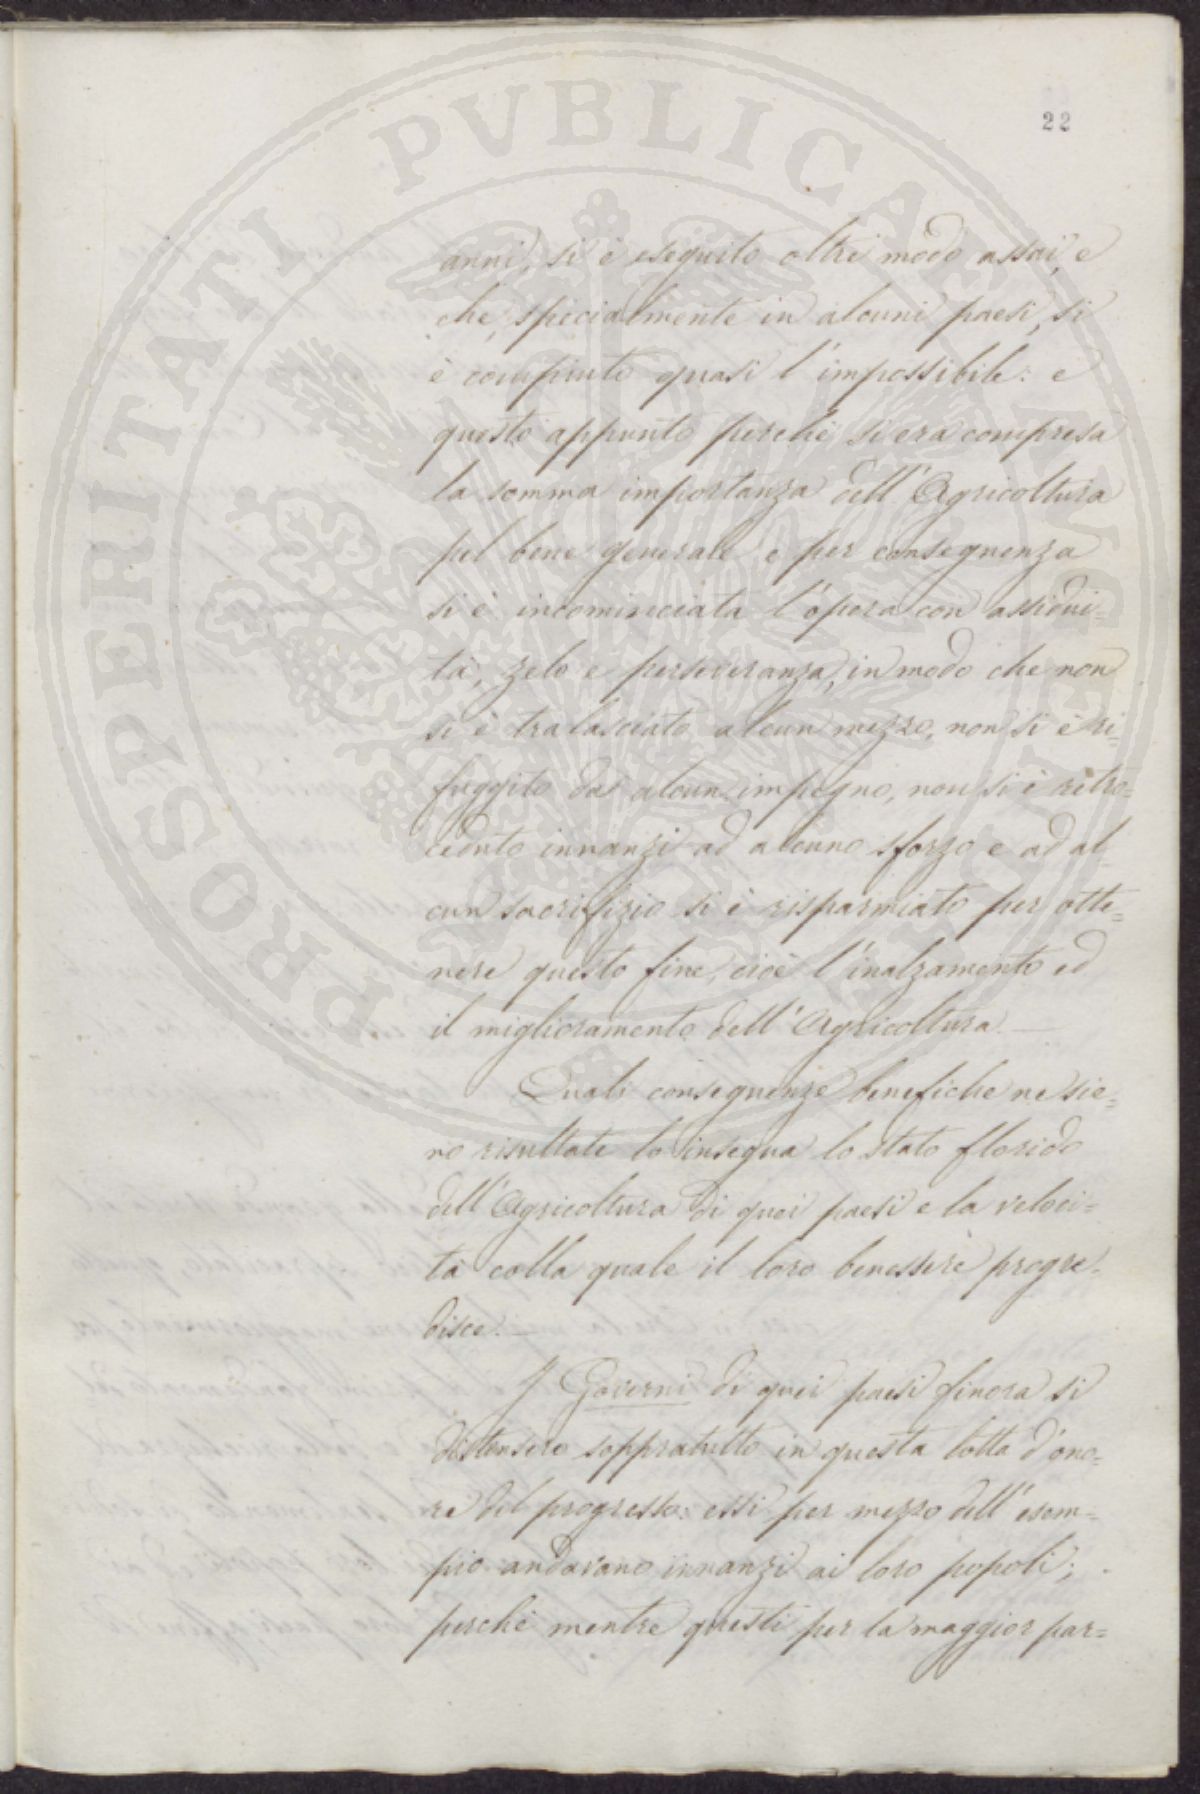 22
anni, si è eseguito oltre modo assai, e
che, specialmente in alcuni paesi, si
è compiuto quasi l'impossibile: e
questo appunto perchè si era compresa
la somma importanza dell'Agricoltura
pel bene generale e per conseguenza
si è incominciata l'opera con assidui-
tà, zelo e perseveranza, in modo che non
si è tralasciato alcun mezzo, non si è ri-
fuggito da alcun impegno, non si è retro-
ceduto innanzi ad alcuno sforzo e ad al-
cun sacrifizio si è risparmiato per otte=
nere questo fine, cioè l'inalzamento ed
il miglioramento dell'Agricoltura.
Quali conseguenze benefiche ne sie=
no risultate lo insegna lo stato florido
dell'Agricoltura di quei paesi e la veloci=
tà colla quale il loro benessere progre-
disce. —
I Governi di quei paesi finora si
distinsero soppratutto in questa lotta d'ono-
re del progresso: essi per mezzo dell'esem-
pio andavano innanzi ai loro popoli;
perchè mentre questi per la maggior par=
PROSPERITATI PVBLICAE AVGENDAE